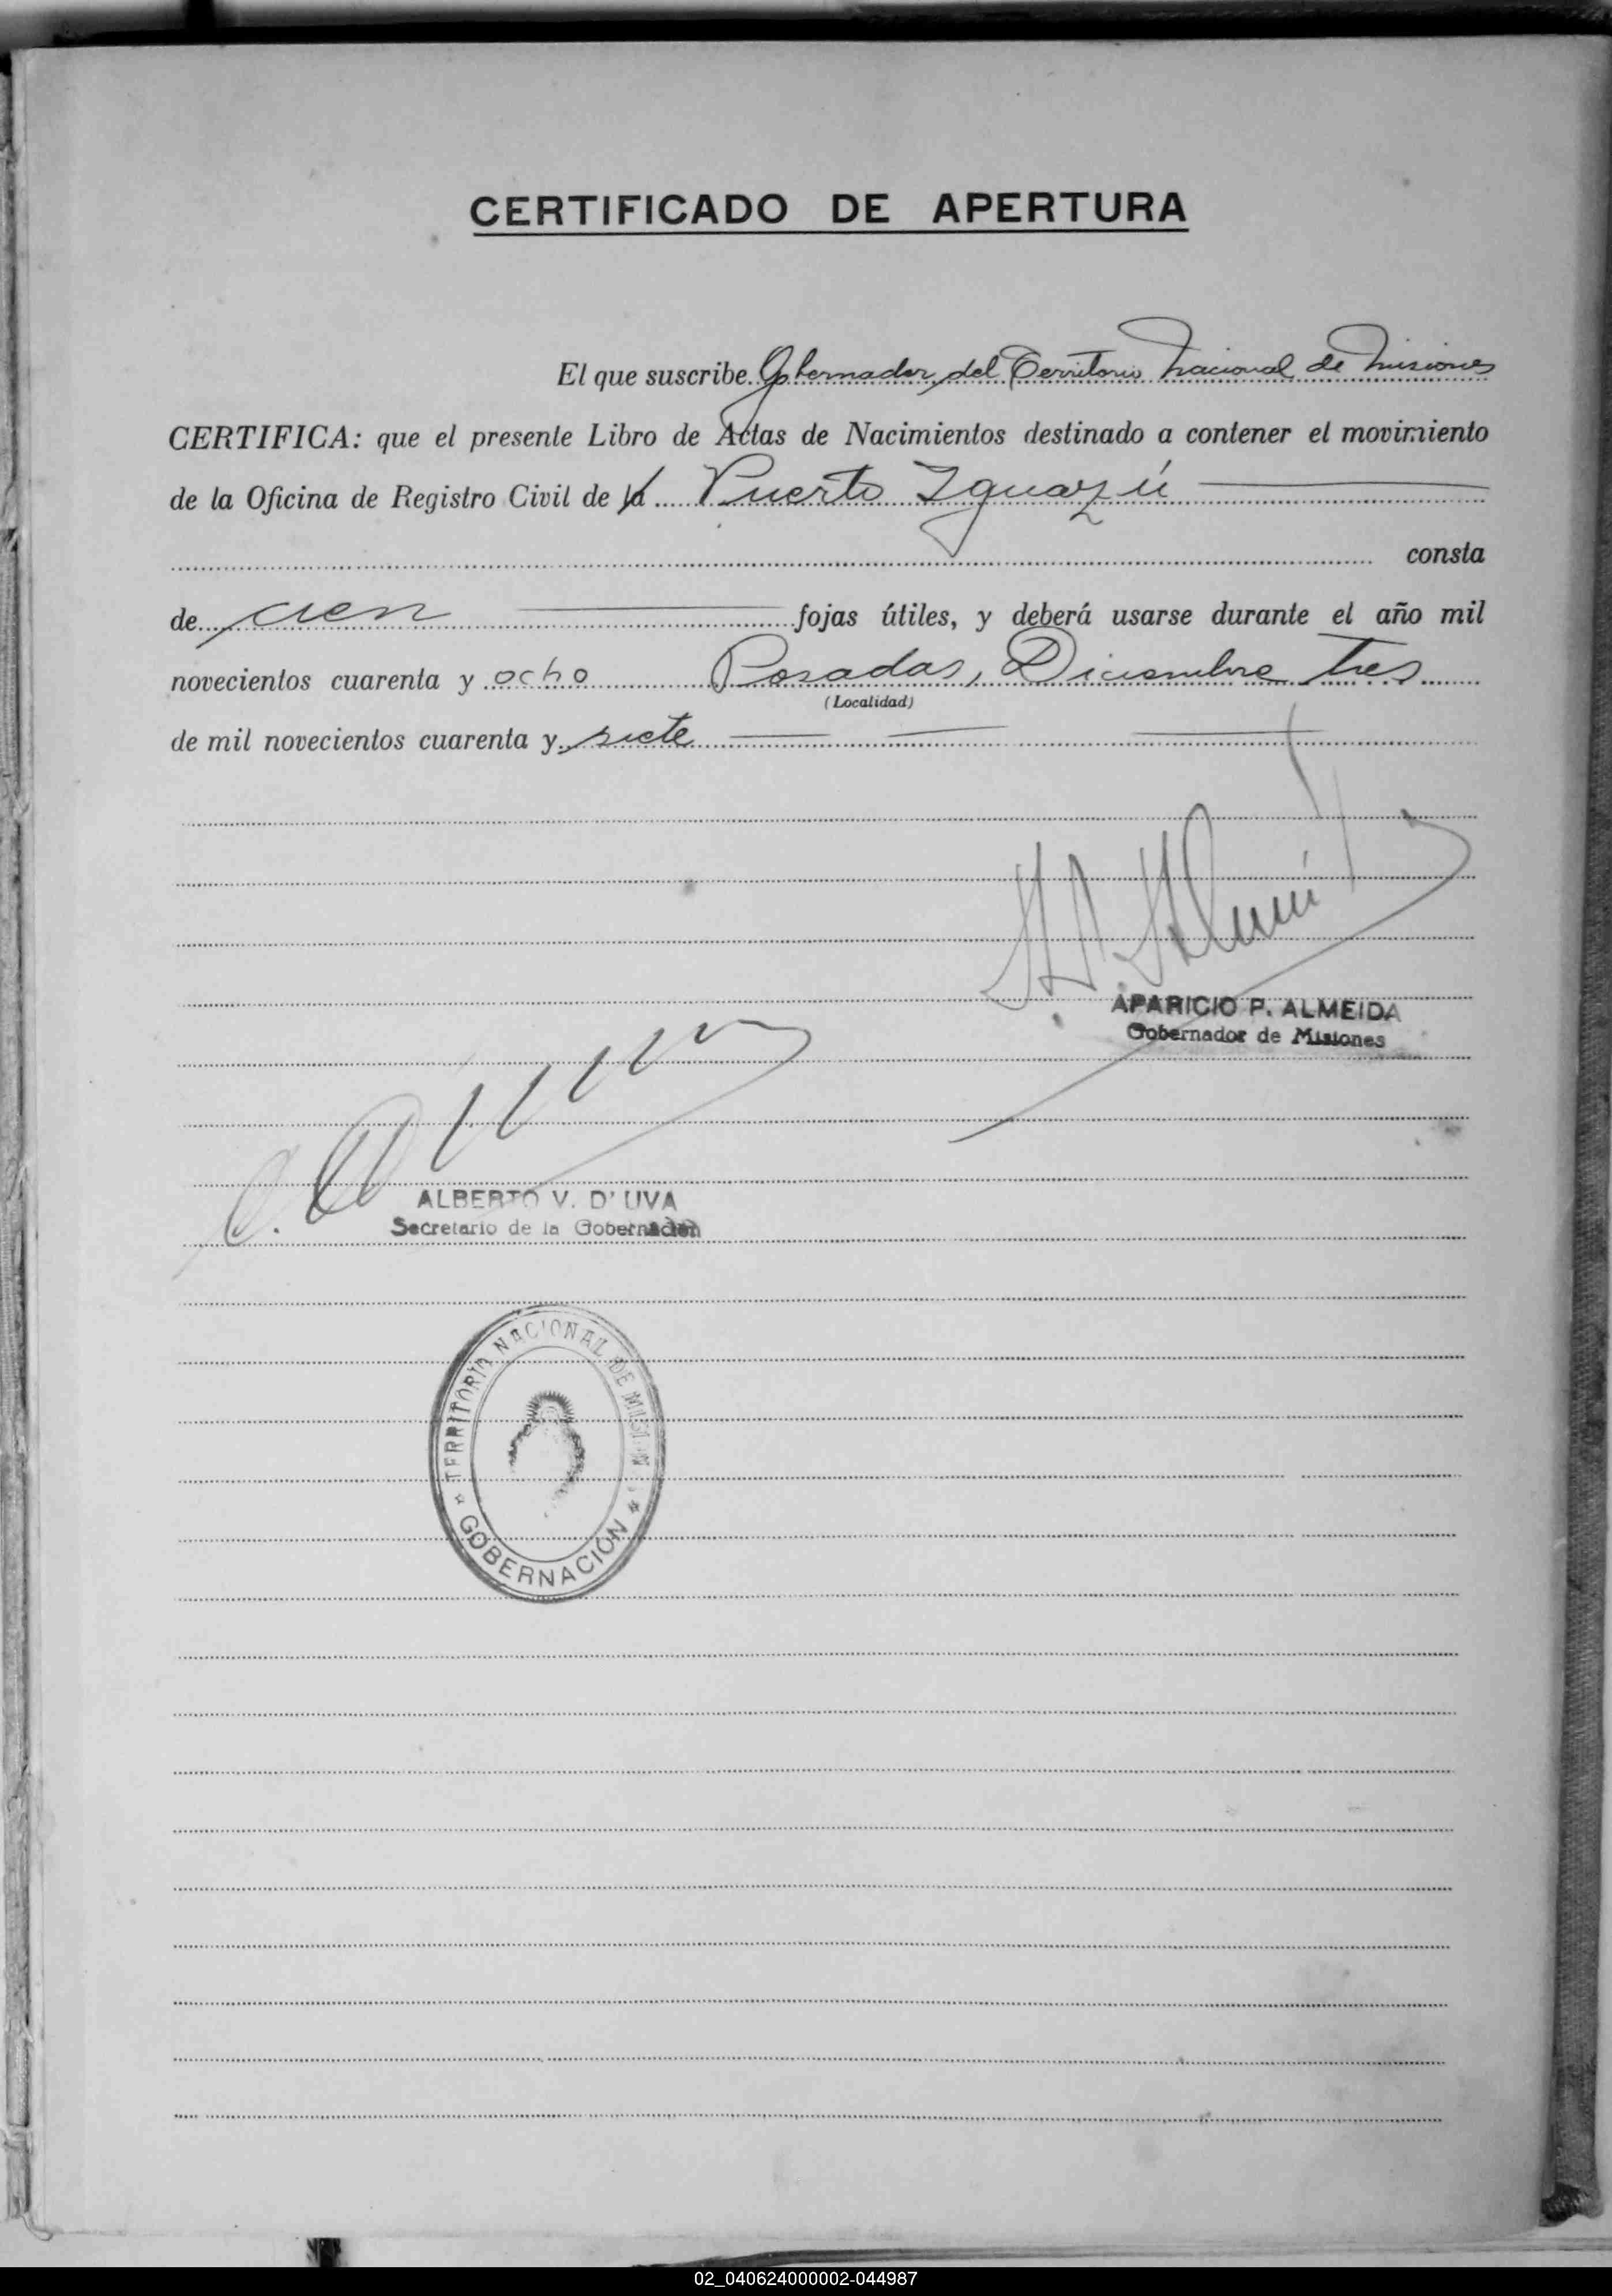 CERTIFICADO DE APERTURA
El que suscribe Gobernador del Territorio Nacional de Misiones
CERTIFICA: que el presente Libro de Actas de Nacimientos destinado a contener el movimiento
de la Oficina de Registro Civil de la Puerto Iguazú
consta
de cien fojas útiles, y deberá usarse durante el año mil
novecientos cuarenta y ocho Posadas, Diciembre tres
(Localidad)
de mil novecientos cuarenta y siete
APARICIO P. ALMEIDA
Gobernador de Misiones
ALBERTO V. D'UVA
Secretario de la Gobernacion
TERRITORIO NACIONAL DE
GOBERNACIÓN
02_040624000002-044987